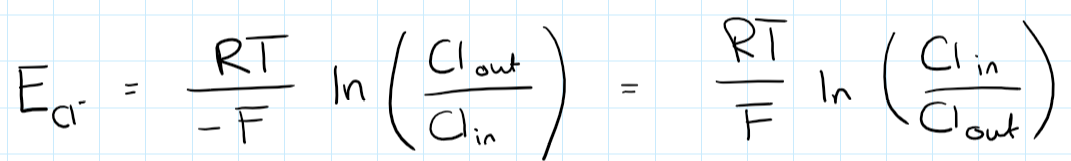 E_Cl⁻ = RT / −F ln (Cl_out / Cl_in) = RT / F ln (Cl_in / Cl_out)